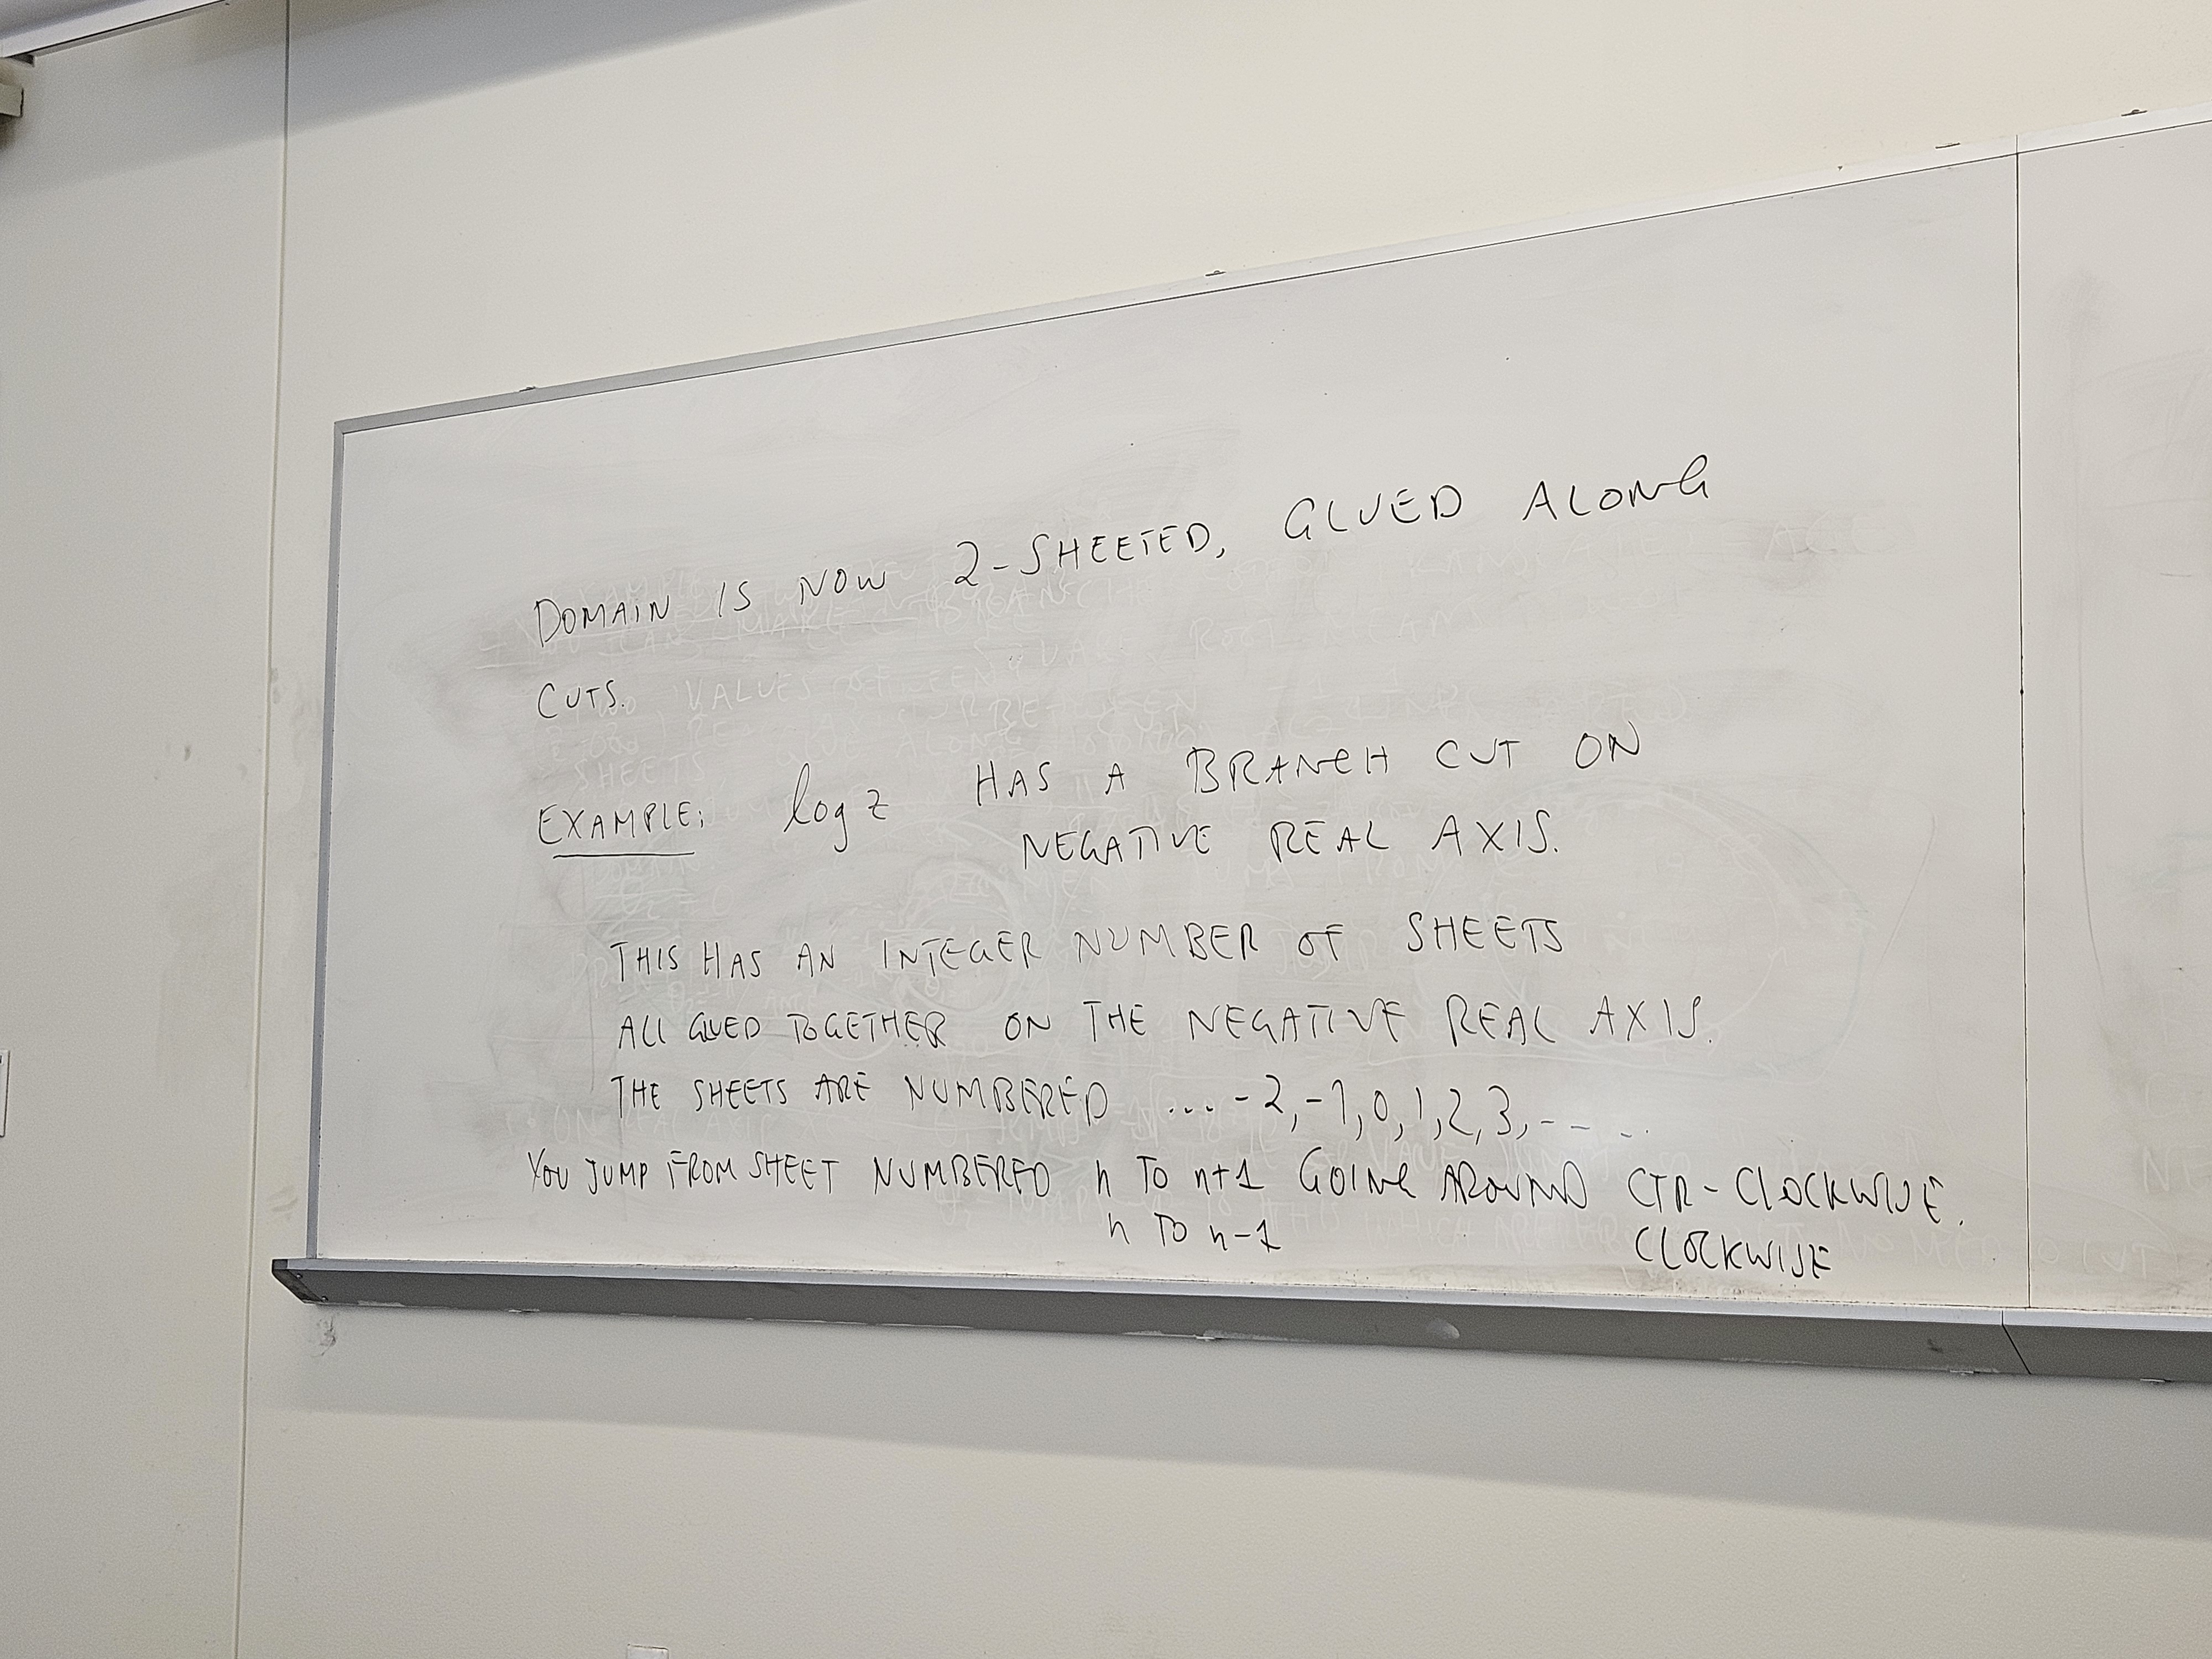 DOMAIN IS NOW 2-SHEETED, GLUED ALONG
CUTS.
EXAMPLE: log z HAS A BRANCH CUT ON
NEGATIVE REAL AXIS.
THIS HAS AN INTEGER NUMBER OF SHEETS
ALL GLUED TOGETHER ON THE NEGATIVE REAL AXIS.
THE SHEETS ARE NUMBERED ... -2, -1, 0, 1, 2, 3, ----
YOU JUMP FROM SHEET NUMBERED n TO n+1 GOING AROUND CTR-CLOCKWISE.
n TO n-1 CLOCKWISE